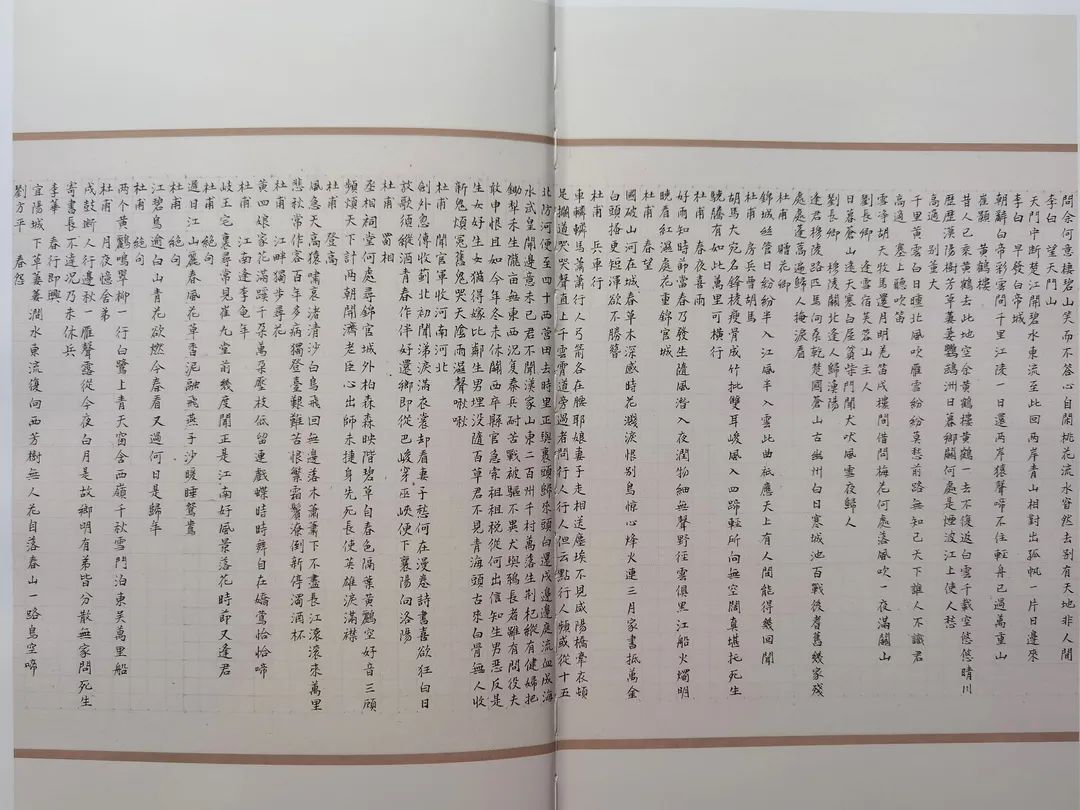 問余何意棲碧山笑而不答心自閑桃花流水窅然去别有天地非人間
李白 望天門山
天門中断楚江開碧水東流至此回兩岸青山相對出孤帆一片日邊來
李白 早發白帝城
朝辭白帝彩雲間千里江陵一日還兩岸猿聲啼不住輕舟已過萬重山
崔顥 黄鶴樓
昔人已乘黄鶴去此地空余黄鶴樓黄鶴一去不復返白雲千載空悠悠晴川
歷歷漢陽樹芳草萋萋鸚鵡洲日暮鄉關何處是煙波江上使人愁
高適 别董大
千里黄雲白日曛北風吹雁雪紛紛莫愁前路無知己天下誰人不識君
高適 塞上聽吹笛
雪淨胡天牧馬還月明羌笛戍樓間借問梅花何處落風吹一夜滿關山
劉長卿 逢雪宿芙蓉山主人
日暮蒼山遠天寒白屋貧柴門聞犬吠風雪夜歸人
劉長卿 穆陵關北逢人歸漁陽
逢君穆陵路匹馬向桑乾楚國蒼山古幽州白日寒城池百戰後耆舊幾家殘
處處蓬蒿遍歸人掩淚看
杜甫 贈花卿
錦城絲管日紛紛半入江風半入雲此曲祇應天上有人間能得幾回聞
杜甫 房兵曹胡馬
胡馬大宛名鋒棱瘦骨成竹批雙耳峻風入四蹄輕所向無空闊真堪托死生
驍騰有如此萬里可横行
杜甫 春夜喜雨
好雨知時節當春乃發生隨風潛入夜潤物細無聲野徑雲俱黑江船火燭明
曉看紅濕處花重錦官城
杜甫 春望
國破山河在城春草木深感時花濺淚恨别鳥惊心烽火連三月家書抵萬金
白頭搔更短渾欲不勝簪
杜甫 兵車行
車轔轔馬蕭蕭行人弓箭各在腰耶娘妻子走相送塵埃不見咸陽橋牽衣頓
足攔道哭哭聲直上干雲霄道旁過者問行人行人但云點行人頻或從十五
北防河便至四十西營田去時里正與裹頭歸來頭白還戍邊邊庭流血成海
水武皇開邊意未已君不聞漢家山東二百州千村萬落生荆杞縱有健婦把
鋤犁禾生隴亩無東西况復秦兵耐苦戰被驅不異犬與鷄長者雖有問役夫
敢申恨且如今年冬未休關西卒縣官急索租租税從何出信知生男惡反是
生女好生女猶得嫁比鄰生男埋没隨百草君不見青海頭古來白骨無人收
新鬼煩冤舊鬼哭天陰雨濕聲啾啾
杜甫 聞官軍收河南河北
劍外忽傳收薊北初聞涕淚滿衣裳却看妻子愁何在漫卷詩書喜欲狂白日
放歌須縱酒青春作伴好還鄉即從巴峽穿巫峽便下襄陽向洛陽
杜甫 蜀相
丞相祠堂何處尋錦官城外柏森森映階碧草自春色隔葉黄鸝空好音三顧
頻煩天下計两朝開濟老臣心出師未捷身先死長使英雄淚滿襟
杜甫 登高
風急天高猿嘯哀渚清沙白鳥飛回無邊落木蕭蕭下不盡長江滚滚來萬里
悲秋常作客百年多病獨登臺艱難苦恨繁霜鬢潦倒新停濁酒杯
杜甫 江畔獨步尋花
黄四娘家花滿蹊千朵萬朵壓枝低留連戲蝶時時舞自在嬌鶯恰恰啼
杜甫 江南逢李龟年
岐王宅裏尋常見崔九堂前幾度聞正是江南好風景落花時節又逢君
杜甫 絕句
遲日江山麗春風花草香泥融飛燕子沙暖睡鴛鴦
杜甫 絕句
江碧鳥逾白山青花欲燃今春看又過何日是歸年
杜甫 絕句
两个黄鸝鳴翠柳一行白鷺上青天窗含西嶺千秋雪門泊東吴萬里船
杜甫 月夜憶舍弟
戍鼓断人行邊秋一雁聲露從今夜白月是故鄉明有弟皆分散無家問死生
寄書長不達况乃未休兵
李華 春行即興
宜陽城下草萋萋澗水東流復向西芳樹無人花自落春山一路鳥空啼
劉方平 春怨